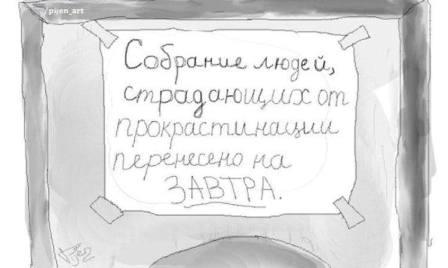 pijen_art
Собрание людей,
страдающих от
прокрастинации
перенесено на
ЗАВТРА.